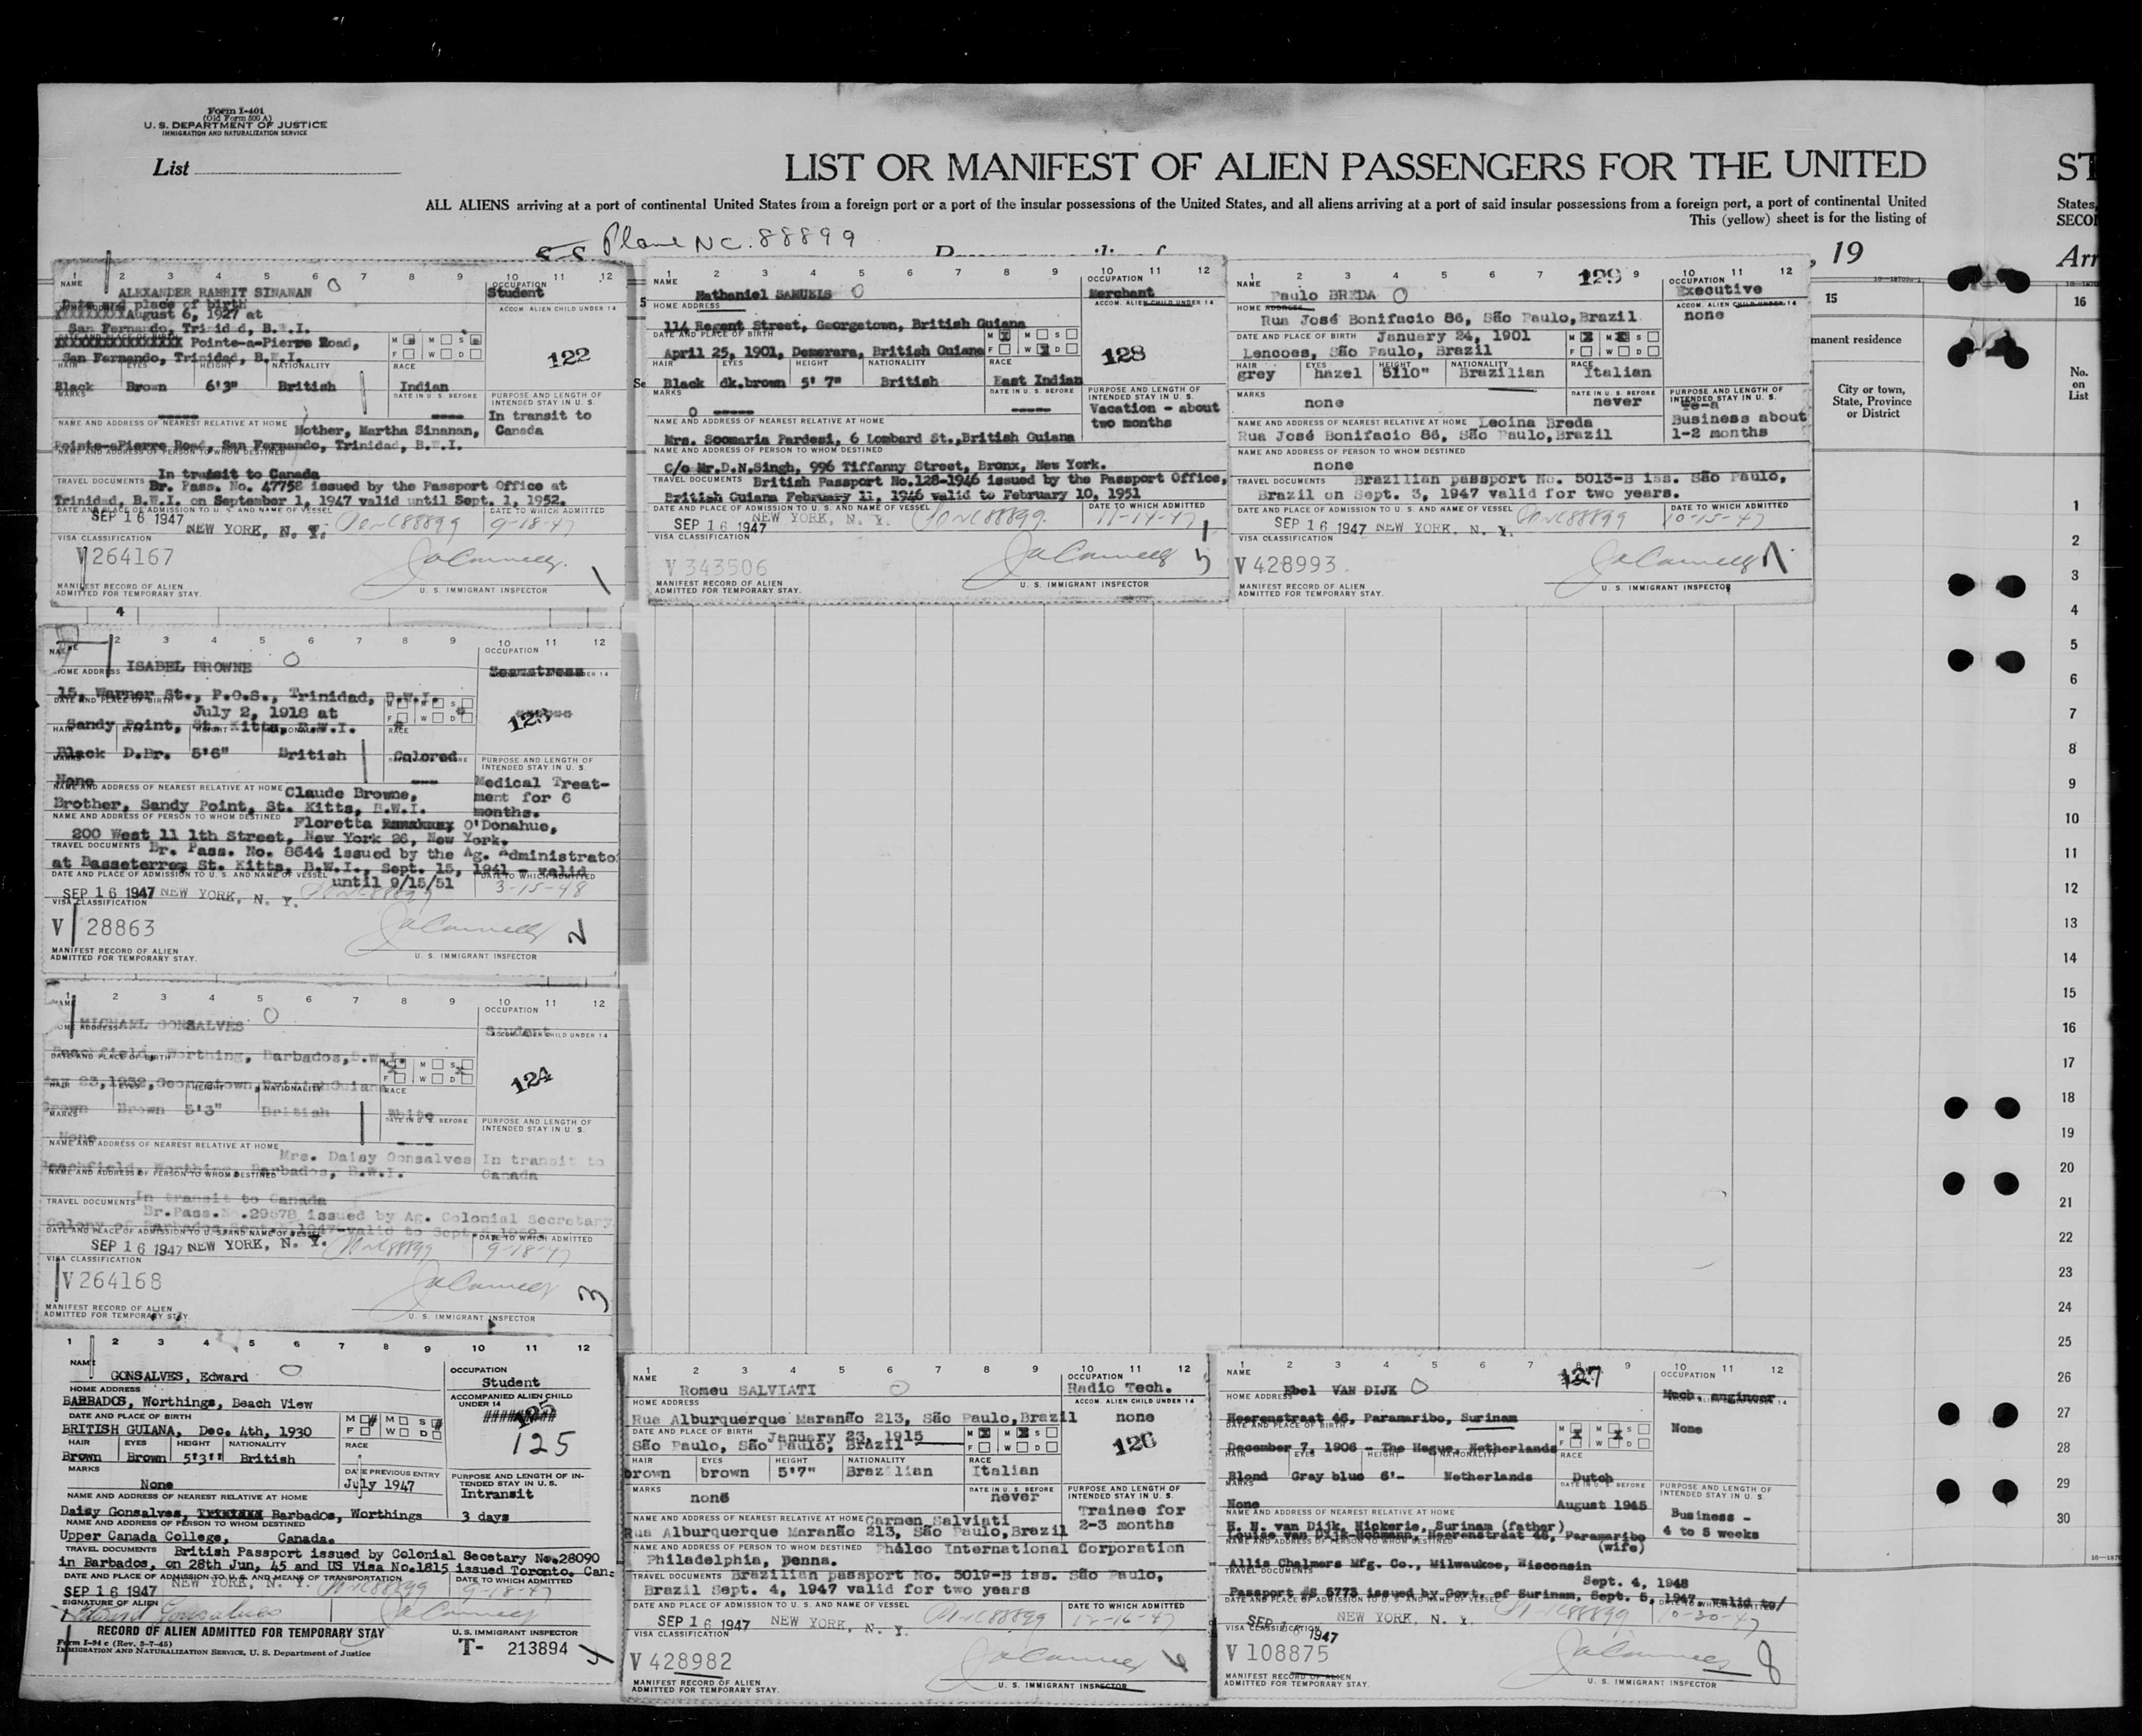 Form I-401
(Old Form 500 A)
U. S. DEPARTMENT OF JUSTICE
IMMIGRATION AND NATURALIZATION SERVICE
List
LIST OR MANIFEST OF ALIEN PASSENGERS FOR THE UNITED
ST
ALL ALIENS arriving at a port of continental United States from a foreign port or a port of the insular possessions of the United States, and all aliens arriving at a port of said insular possessions from a foreign port, a port of continental United
States,
This (yellow) sheet is for the listing of
SECO
Plane NC. 88899
, 19
Arr
1 2 3 4 5 6 7 8 9 10 11 12
NAME ALEXANDER RAMRIT SINANAN O
OCCUPATION Student
ACCOM. ALIEN CHILD UNDER 14
Date and place of birth
August 6, 1927 at
San Fernando, Trinidad, B.W.I.
Pointe-a-Pierre Road,
San Fernando, Trinidad, B.W.I.
M M S
F W D
122
HAIR EYES HEIGHT NATIONALITY RACE
Black Brown 6'3" British Indian
MARKS
DATE IN U. S. BEFORE
PURPOSE AND LENGTH OF INTENDED STAY IN U. S.
In transit to
Canada
NAME AND ADDRESS OF NEAREST RELATIVE AT HOME Mother, Martha Sinanan,
Pointe-aPierre Road, San Fernando, Trinidad, B.W.I.
NAME AND ADDRESS OF PERSON TO WHOM DESTINED
In transit to Canada
TRAVEL DOCUMENTS Br. Pass. No. 47758 issued by the Passport Office at
Trinidad, B.W.I. on September 1, 1947 valid until Sept. 1, 1952.
DATE AND PLACE OF ADMISSION TO U. S. AND NAME OF VESSEL
DATE TO WHICH ADMITTED
SEP 16 1947 NEW YORK, N. Y. 9-18-47
VISA CLASSIFICATION
V 264167
MANIFEST RECORD OF ALIEN
ADMITTED FOR TEMPORARY STAY.
U. S. IMMIGRANT INSPECTOR
1
1 2 3 4 5 6 7 8 9 10 11 12
NAME Nathaniel SAMUELS O
OCCUPATION Merchant
ACCOM. ALIEN CHILD UNDER 14
HOME ADDRESS
114 Regent Street, Georgetown, British Guiana
DATE AND PLACE OF BIRTH
April 25, 1901, Demerara, British Guiana
M M S
F W D
128
HAIR EYES HEIGHT NATIONALITY RACE
Black dk.brown 5' 7" British East Indian
MARKS
DATE IN U. S. BEFORE
PURPOSE AND LENGTH OF INTENDED STAY IN U. S.
Vacation - about
two months
NAME AND ADDRESS OF NEAREST RELATIVE AT HOME
Mrs. Soomaria Pardesi, 6 Lombard St., British Guiana
NAME AND ADDRESS OF PERSON TO WHOM DESTINED
C/o Mr.D.N.Singh, 996 Tiffanny Street, Bronx, New York.
TRAVEL DOCUMENTS British Passport No.128-1946 issued by the Passport Office,
British Guiana February 11, 1946 valid to February 10, 1951
DATE AND PLACE OF ADMISSION TO U. S. AND NAME OF VESSEL
DATE TO WHICH ADMITTED
SEP 16 1947 NEW YORK, N. Y. 11-14-47
VISA CLASSIFICATION
V 343506
MANIFEST RECORD OF ALIEN
ADMITTED FOR TEMPORARY STAY.
U. S. IMMIGRANT INSPECTOR
5
1 2 3 4 5 6 7 129 9 10 11 12
NAME Paulo BREDA O
OCCUPATION Executive
ACCOM. ALIEN CHILD UNDER 14
none
HOME ADDRESS
Rua José Bonifacio 86, São Paulo, Brazil
DATE AND PLACE OF BIRTH January 24, 1901
Lencoes, São Paulo, Brazil
M M S
F W D
HAIR EYES HEIGHT NATIONALITY RACE
grey hazel 5110" Brazilian Italian
MARKS none
DATE IN U. S. BEFORE never
PURPOSE AND LENGTH OF INTENDED STAY IN U. S.
Business about
1-2 months
NAME AND ADDRESS OF NEAREST RELATIVE AT HOME Leoina Breda
Rua José Bonifacio 86, São Paulo, Brazil
NAME AND ADDRESS OF PERSON TO WHOM DESTINED
none
TRAVEL DOCUMENTS Brazilian passport No. 5013-B iss. São Paulo,
Brazil on Sept. 3, 1947 valid for two years.
DATE AND PLACE OF ADMISSION TO U. S. AND NAME OF VESSEL
DATE TO WHICH ADMITTED
SEP 16 1947 NEW YORK, N. Y. 10-15-47
VISA CLASSIFICATION
V 428993
MANIFEST RECORD OF ALIEN
ADMITTED FOR TEMPORARY STAY.
U. S. IMMIGRANT INSPECTOR
15
16
manent residence
City or town,
State, Province
or District
No.
on
List
1
2
3
4
5
6
7
8
9
10
11
12
13
14
15
16
17
18
19
20
21
22
23
24
25
26
27
28
29
30
4
2 3 4 5 6 7 8 9 10 11 12
NAME
OCCUPATION
HOME ADDRESS ISABEL BROWNE O
Seamstress
15, Warner St., P.O.S., Trinidad, B.W.I.
DATE AND PLACE OF BIRTH
July 2, 1918 at
Sandy Point, St. Kitts, B.W.I.
M M S
F W D
123
HAIR EYES HEIGHT NATIONALITY RACE
Black D.Br. 5'6" British Colored
MARKS
None
PURPOSE AND LENGTH OF INTENDED STAY IN U. S.
Medical Treat-
ment for 6
months.
NAME AND ADDRESS OF NEAREST RELATIVE AT HOME Claude Browne,
Brother, Sandy Point, St. Kitts, B.W.I.
NAME AND ADDRESS OF PERSON TO WHOM DESTINED Floretta O'Donahue,
200 West 11 1th Street, New York 26, New York.
TRAVEL DOCUMENTS Br. Pass. No. 8644 issued by the Ag. Administrato
at Basseterre, St. Kitts, B.W.I., Sept. 15, 1941 - valid
DATE AND PLACE OF ADMISSION TO U. S. AND NAME OF VESSEL until 9/15/51
DATE TO WHICH ADMITTED
SEP 16 1947 NEW YORK, N. Y. 3-15-48
VISA CLASSIFICATION
V 28863
MANIFEST RECORD OF ALIEN
ADMITTED FOR TEMPORARY STAY.
U. S. IMMIGRANT INSPECTOR
2
1 2 3 4 5 6 7 8 9 10 11 12
NAME
OCCUPATION
HOME ADDRESS MICHAEL GONSALVES O
Student
ACCOM. ALIEN CHILD UNDER 14
Beachfield, Worthing, Barbados, B.W.I.
DATE AND PLACE OF BIRTH
May 23,1932, Georgetown, British Guiana
M M S
F W D
124
HAIR EYES HEIGHT NATIONALITY RACE
Brown Brown 5'3" British White
MARKS
None
DATE IN U. S. BEFORE
PURPOSE AND LENGTH OF INTENDED STAY IN U. S.
In transit to
Canada
NAME AND ADDRESS OF NEAREST RELATIVE AT HOME Mrs. Daisy Gonsalves
Beachfield, Worthing, Barbados, B.W.I.
NAME AND ADDRESS OF PERSON TO WHOM DESTINED
In transit to Canada
TRAVEL DOCUMENTS
Br.Pass.No.29578 issued by Ag. Colonial Secretary
Colony of Barbados
DATE AND PLACE OF ADMISSION TO U. S. AND NAME OF VESSEL
DATE TO WHICH ADMITTED
SEP 16 1947 NEW YORK, N. Y. 9-18-47
VISA CLASSIFICATION
V 264168
MANIFEST RECORD OF ALIEN
ADMITTED FOR TEMPORARY STAY.
U. S. IMMIGRANT INSPECTOR
3
1 2 3 4 5 6 7 8 9 10 11 12
NAME
GONSALVES, Edward O
OCCUPATION
Student
HOME ADDRESS
BARBADOS, Worthings, Beach View
ACCOMPANIED ALIEN CHILD UNDER 14
125
DATE AND PLACE OF BIRTH
BRITISH GUIANA, Dec. 4th, 1930
M M S
F W D
125
HAIR EYES HEIGHT NATIONALITY RACE
Brown Brown 5'3" British
MARKS
None
DATE PREVIOUS ENTRY
July 1947
PURPOSE AND LENGTH OF INTENDED STAY IN U. S.
Intransit
3 days
NAME AND ADDRESS OF NEAREST RELATIVE AT HOME
Daisy Gonsalves, Barbados, Worthings
NAME AND ADDRESS OF PERSON TO WHOM DESTINED
Upper Canada College, Canada.
TRAVEL DOCUMENTS British Passport issued by Colonial Secetary No.28090
in Barbados, on 28th Jun, 45 and US Visa No.1815 issued Toronto. Can.
DATE AND PLACE OF ADMISSION TO U. S. AND MEANS OF TRANSPORTATION
DATE TO WHICH ADMITTED
SEP 16 1947 NEW YORK, N. Y. 9-18-47
SIGNATURE OF ALIEN
Edward Gonsalves
RECORD OF ALIEN ADMITTED FOR TEMPORARY STAY
U. S. IMMIGRANT INSPECTOR
Form I-94 c (Rev. 3-7-45)
IMMIGRATION AND NATURALIZATION SERVICE, U. S. Department of Justice
T- 213894
4
1 2 3 4 5 6 7 8 9 10 11 12
NAME Romeu SALVIATI O
OCCUPATION Radio Tech.
ACCOM. ALIEN CHILD UNDER 14
none
HOME ADDRESS
Rua Alburquerque Maranão 213, São Paulo, Brazil
DATE AND PLACE OF BIRTH January 23, 1915
São Paulo, São Paulo, Brazil
M M S
F W D
126
HAIR EYES HEIGHT NATIONALITY RACE
brown brown 5'7" Brazilian Italian
MARKS none
DATE IN U. S. BEFORE never
PURPOSE AND LENGTH OF INTENDED STAY IN U. S.
Trainee for
2-3 months
NAME AND ADDRESS OF NEAREST RELATIVE AT HOME Carmen Salviati
Rua Alburquerque Maranão 213, São Paulo, Brazil
NAME AND ADDRESS OF PERSON TO WHOM DESTINED Philco International Corporation
Philadelphia, penna.
TRAVEL DOCUMENTS Brazilian passport No. 5019-B iss. São Paulo,
Brazil Sept. 4, 1947 valid for two years
DATE AND PLACE OF ADMISSION TO U. S. AND NAME OF VESSEL
DATE TO WHICH ADMITTED
SEP 16 1947 NEW YORK, N. Y. 12-16-47
VISA CLASSIFICATION
V 428982
MANIFEST RECORD OF ALIEN
ADMITTED FOR TEMPORARY STAY.
U. S. IMMIGRANT INSPECTOR
1 2 3 4 5 6 7 127 9 10 11 12
NAME
OCCUPATION
HOME ADDRESS Ebel VAN DIJK O
Mech. engineer
None
Heerenstraat 46, Paramaribo, Surinam
DATE AND PLACE OF BIRTH
December 7, 1906 - The Hague, Netherlands
M M S
F W D
HAIR EYES HEIGHT NATIONALITY RACE
Blond Gray blue 6'- Netherlands Dutch
MARKS
None
DATE IN U. S. BEFORE
August 1945
PURPOSE AND LENGTH OF INTENDED STAY IN U. S.
Business -
4 to 5 weeks
NAME AND ADDRESS OF NEAREST RELATIVE AT HOME
H. N. van Dijk, Nickerie, Surinam (father)
Louise van Dijk-Hohmann, Heerenstraat 46, Paramaribo
(wife)
NAME AND ADDRESS OF PERSON TO WHOM DESTINED
Allis Chalmers Mfg. Co., Milwaukee, Wisconsin
TRAVEL DOCUMENTS
Sept. 4, 1948
Passport #S 5773 issued by Govt. of Surinam, Sept. 5, 1947, valid to/
DATE AND PLACE OF ADMISSION TO U. S. AND NAME OF VESSEL
SEP 16 1947 NEW YORK, N. Y. 10-30-47
VISA CLASSIFICATION
V 108875
MANIFEST RECORD OF ALIEN
ADMITTED FOR TEMPORARY STAY.
U. S. IMMIGRANT INSPECTOR
8